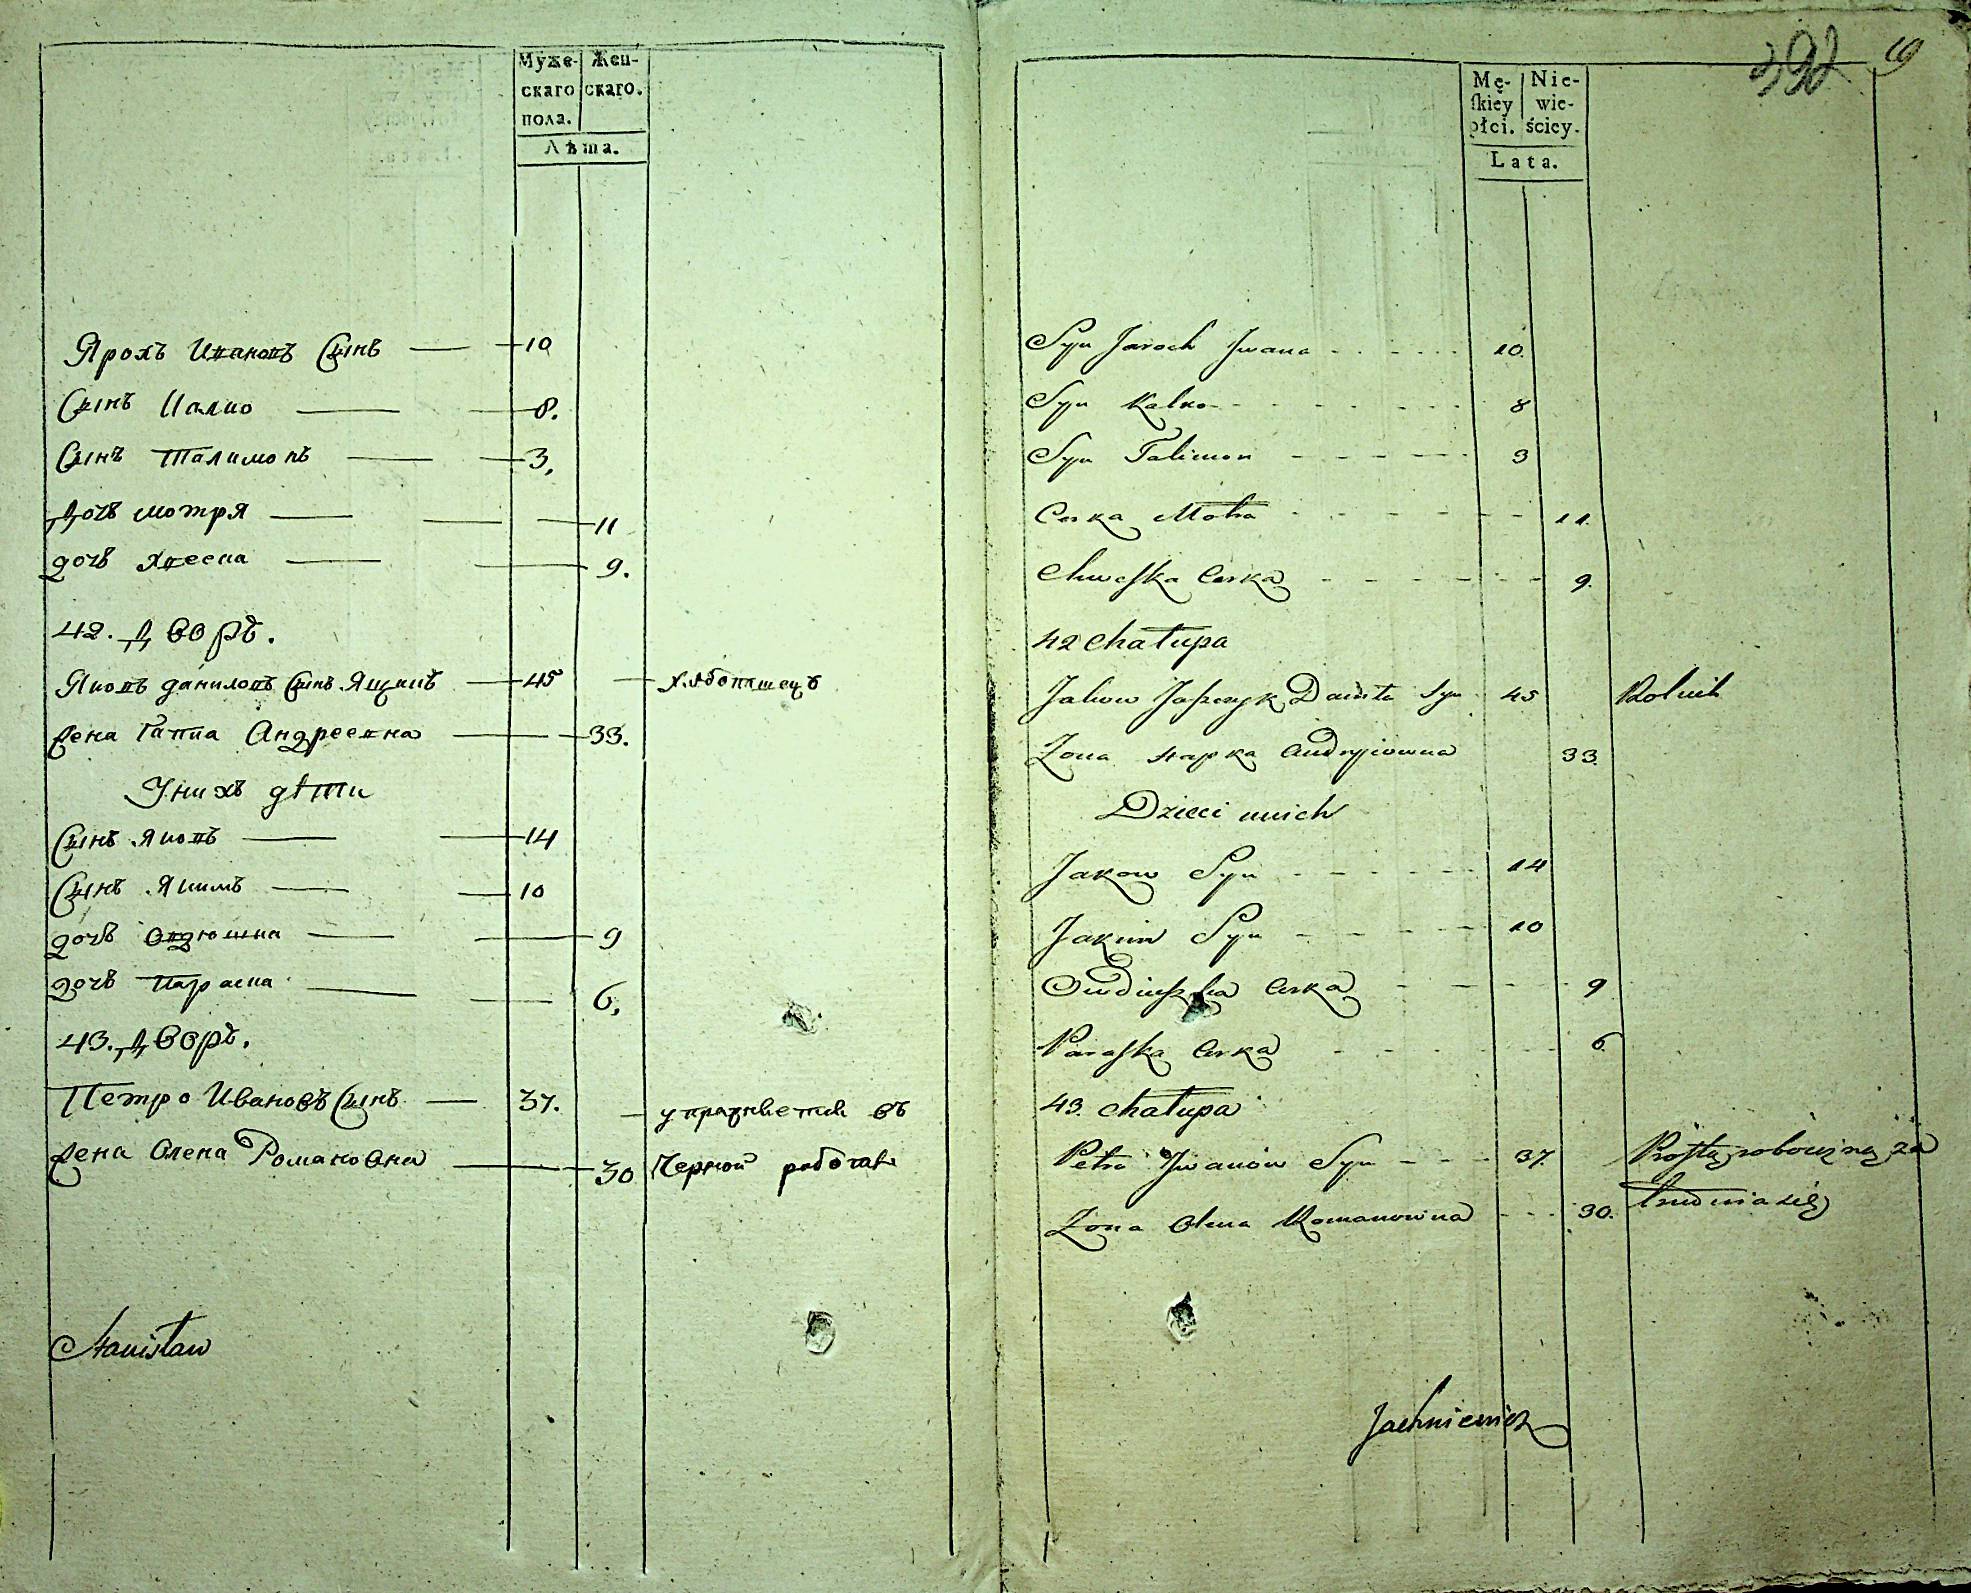 Муже- Жен-
скаго скаго.
пола.
Лѣта.
Ярохъ Ивановъ Сынъ 10
Сынъ Калко 8.
Сынъ Талимонъ 3,
Дочъ мотря 11
дочъ Хвеска 9.
42. Дворъ.
Яковъ даниловъ Сынъ Ящикъ 45 хлѣбопашецъ
Жена Гапка Андреевна 33.
У нихъ дѣти
Сынъ Яковъ 14
Сынъ Якимъ 10
дочъ Овдюшка 9
дочъ Параска 6,
43. Дворъ.
Петро Ивановъ Сынъ 37. упражнѣетсѣ въ
Жена Олена Романовна 30 Черной работѣ
Stanisław
392 19
Mę- Nie-
skiey wie-
płci. ściey.
Lata.
Syn Jaroch Jwana 10.
Syn Kalko 8
Syn Talimon 3
Corka Motra 11.
Chweska Corka 9.
42 Chałupa
Jakow Jaszczyk Daniła Syn 45 Rolnik
Zona Hapka Andryiowna 33.
Dzieci unich
Jakow Syn 14
Jakim Syn 10
Owdiuszka Corka 9
Paraska Corka 6.
43. Chałupa
Petro Jwanow Syn 37. Prostą robocizną za
Zona Olena Romanowna 30. trudnia się
Jachniewicz